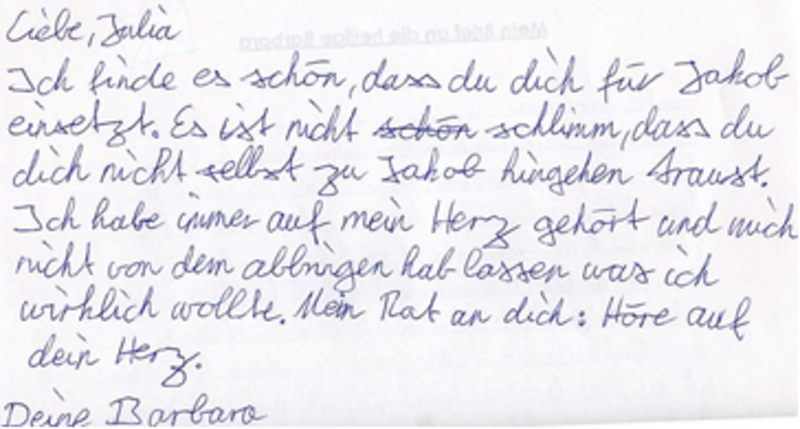 Liebe, Julia
Ich finde es schön, dass du dich für Jakob
einsetzt. Es ist nicht schön schlimm, dass du
dich nicht selbst zu Jakob hingehen traust.
Ich habe immer auf mein Herz gehört und mich
nicht von dem abbrigen hab lassen was ich
wirklich wollte. Mein Rat an dich: Höre auf
dein Herz.
Deine Barbara